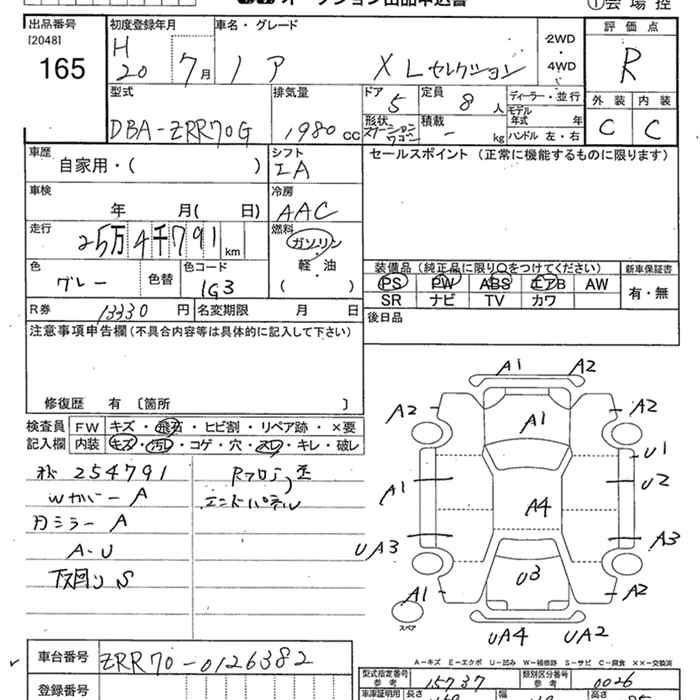 オークション出品申込書
① 会場控
出品番号
[2048]
165
初度登録年月
H
20 7月
車名・グレード
ノア XLセレクション
2WD
・
4WD
評価点
R
外装 内装
C C
型式
DBA-ZRR70G
排気量
1980 cc
ドア
5
定員
8 人
形状
ステーションワゴン
積載
- kg
ディーラー・並行
モデル年式 年
ハンドル 左・右
車歴
自家用・( )
シフト
IA
セールスポイント (正常に機能するものに限ります)
車検
年 月( 日)
冷房
AAC
走行
25万4千791 km
燃料
ガソリン
・
軽油
( )
色
グレー
色替
色コード
1G3
装備品 (純正品に限り○をつけてください)
PS PW ABS エアB AW
SR ナビ TV カワ
新車保証書
有・無
R券 13330 円
名変期限 月 日
後日品
注意事項申告欄 (不具合内容等は具体的に記入して下さい)
修復歴 有 〔箇所 〕
検査員
記入欄
FW キズ・飛石・ヒビ割・リペア跡・×要
内装 キズ・汚レ・コゲ・穴・スレ・キレ・破レ
254791
Wカバー A
ミラー A
A・U
下回り S
Rフロア歪
エンドパネル
A1 A2
A2 A1 A2
U1
A1 U2
A4
UA3 A3
U3
A1 A2
スペア
UA4 UA2
A-キズ E-エクボ U-凹み W-補修跡 S-サビ C-腐食 ××-交換済
車台番号 ZRR70-0126382
登録番号
型式指定番号
参考
15737
類別区分番号
参考
0026
車庫証明用 長さ 幅 高さ